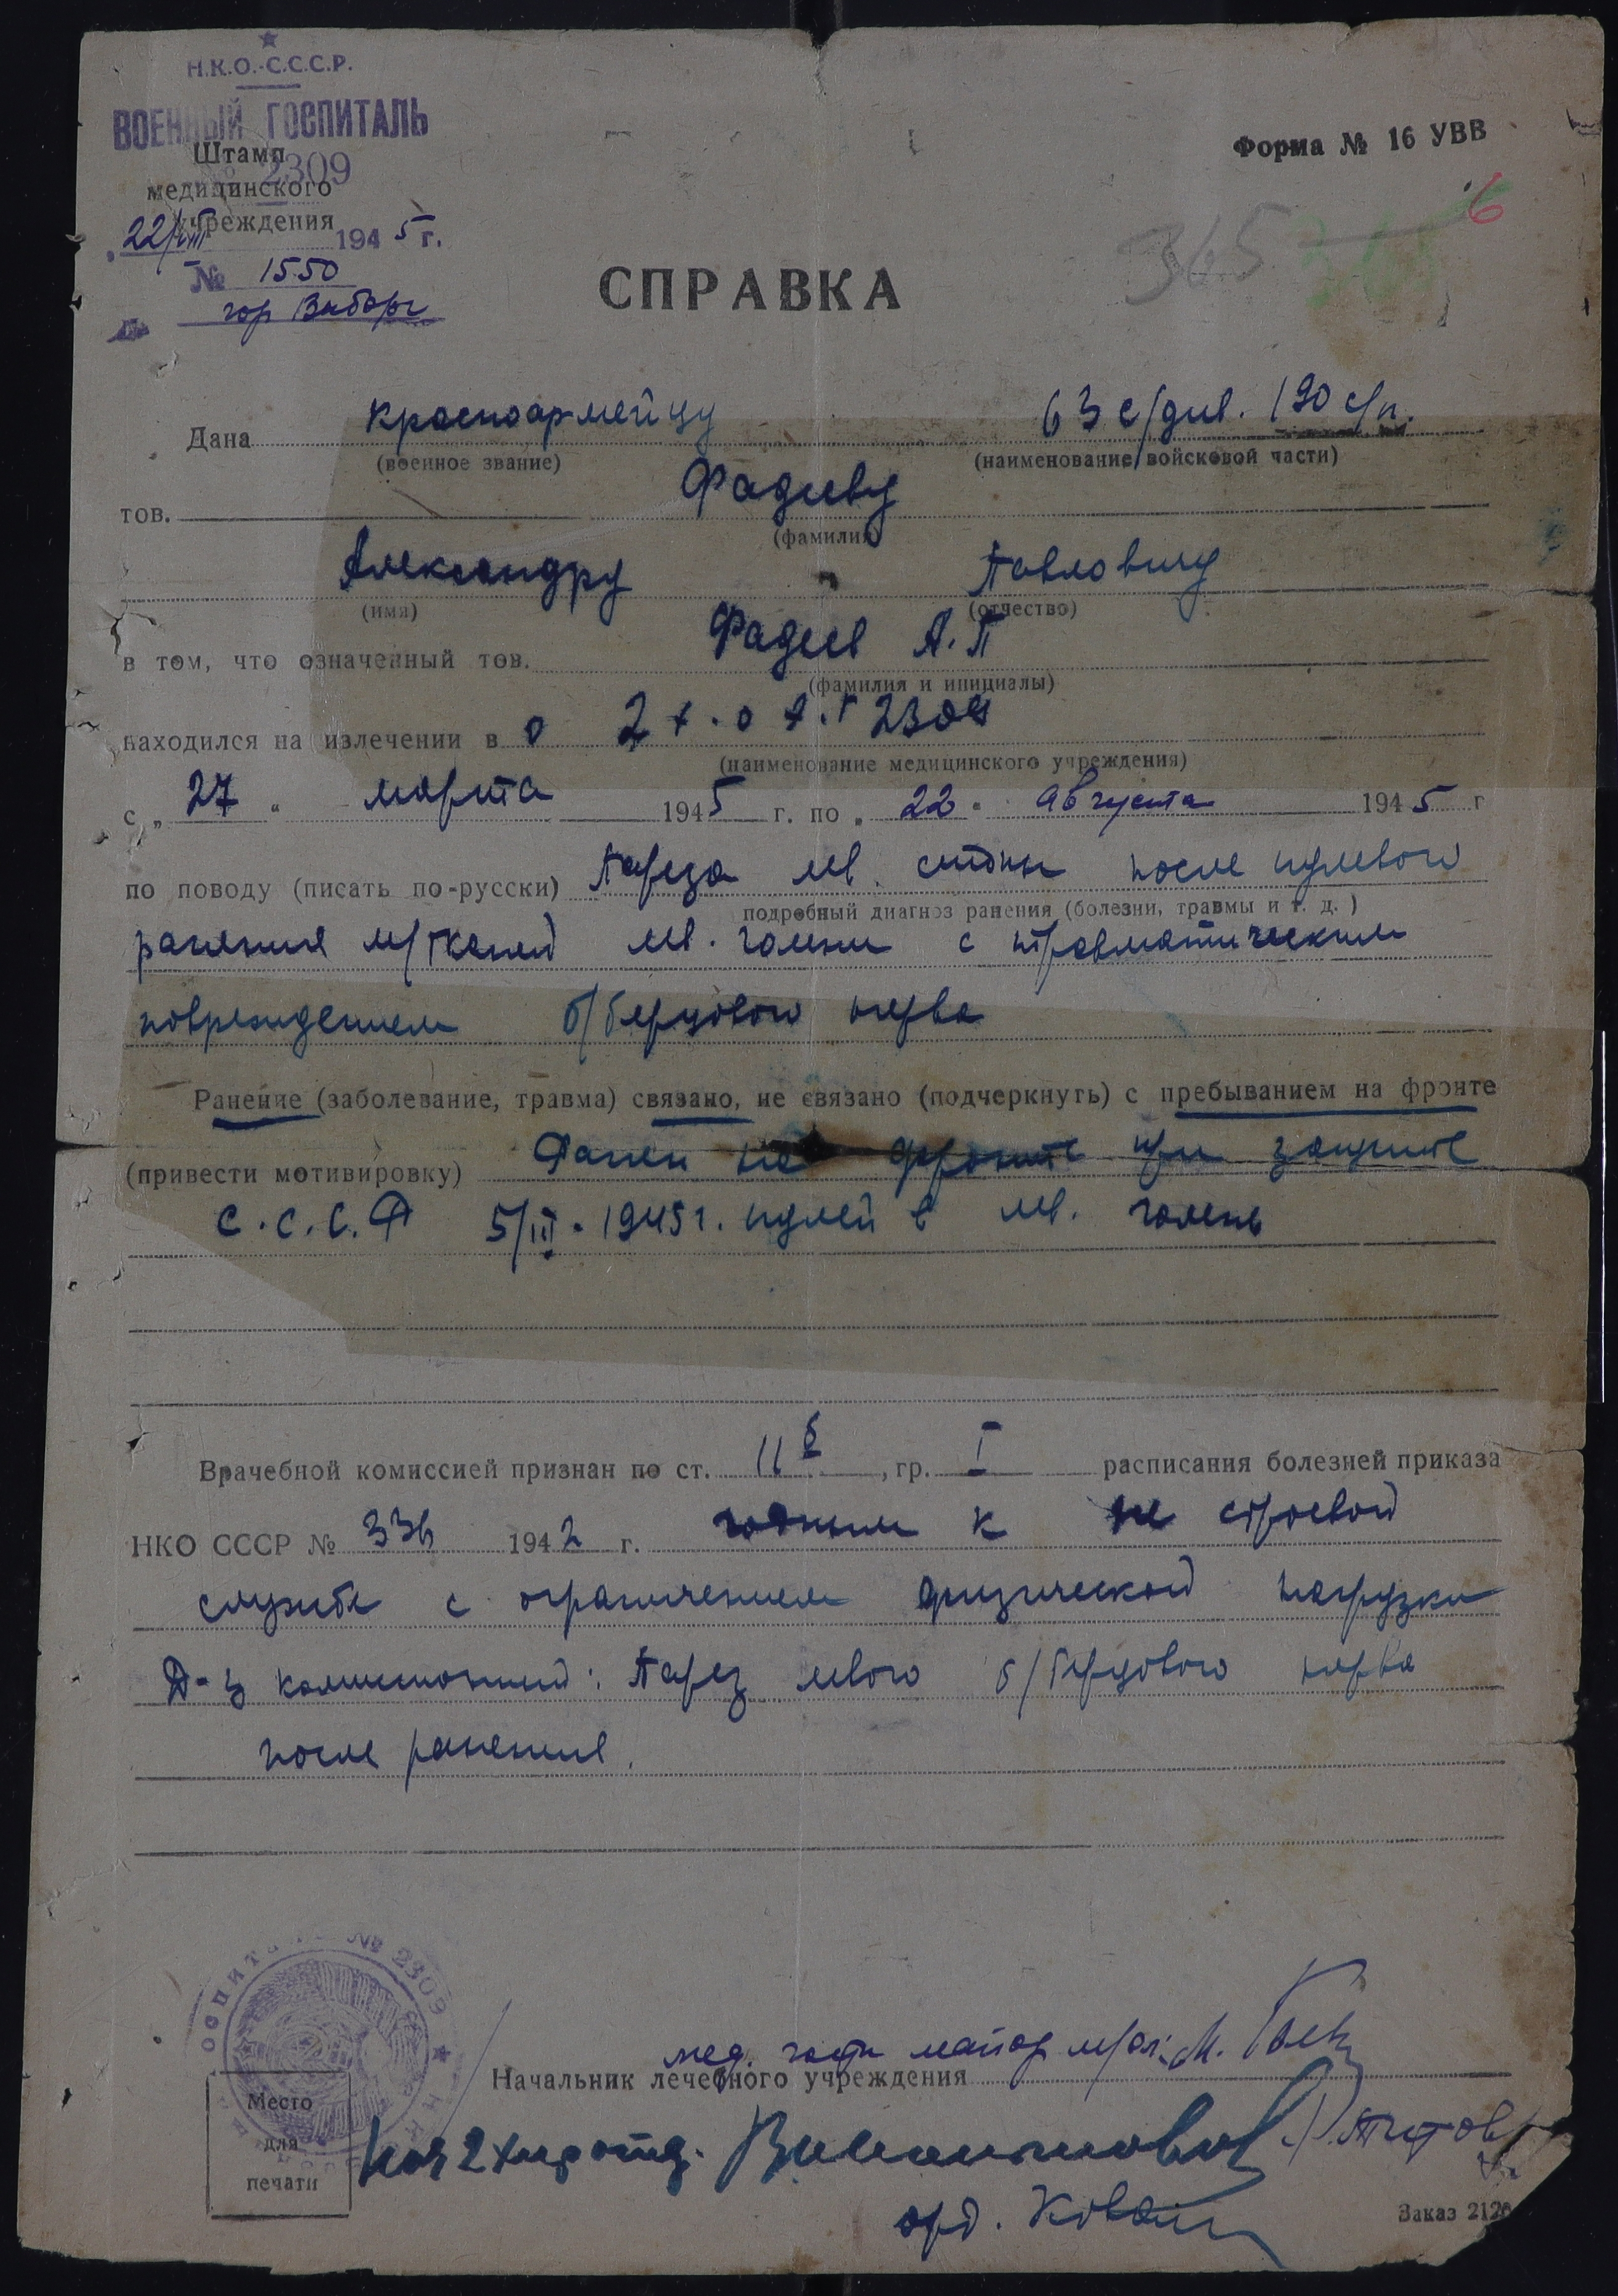 Н.К.О.-С.С.С.Р.
ВОЕННЫЙ ГОСПИТАЛЬ
№ 2309
Штамп
медицинского
учреждения
22/VIII 1945 г.
№ 1550
гор Выборг
Форма № 16 УВВ
6
365
СПРАВКА
Дана красноармейцу 63 с/див. 190 с/п.
(военное звание) (наименование войсковой части)
тов. Фадееву
(фамилия)
Александру Павловичу
(имя) (отчество)
в том, что означенный тов. Фадеев А.П
(фамилия и инициалы)
находился на излечении в 2 х.о 2309
(наименование медицинского учреждения)
с „ 27 " марта 1945 г. по „ 22 " августа 1945 г
по поводу (писать по-русски) Пареза лев. стопы после пулевого
подробный диагноз ранения (болезни, травмы и т. д. )
ранения м/тканей лев. голени с травматическим
повреждением б/берцового нерва
Ранение (заболевание, травма) связано, не связано (подчеркнуть) с пребыванием на фронте
(привести мотивировку) Ранен на фронте при защите
С.С.С.Р 5/III-1945 г. пулей в лев. голень
Врачебной комиссией признан по ст. 11 б, гр. I расписания болезней приказа
НКО СССР № 336 1942 г. годным к не строевой
службе с ограничением физической нагрузки
Д-з комиссионный: Парез левого б/берцового нерва
после ранения.
ОСПИТ № 2309
мед. части майор м/сл. М.
Начальник лечебного учреждения
Место
для
печати
Нач 2 хир отд.
Титов
орд.
Заказ 2126